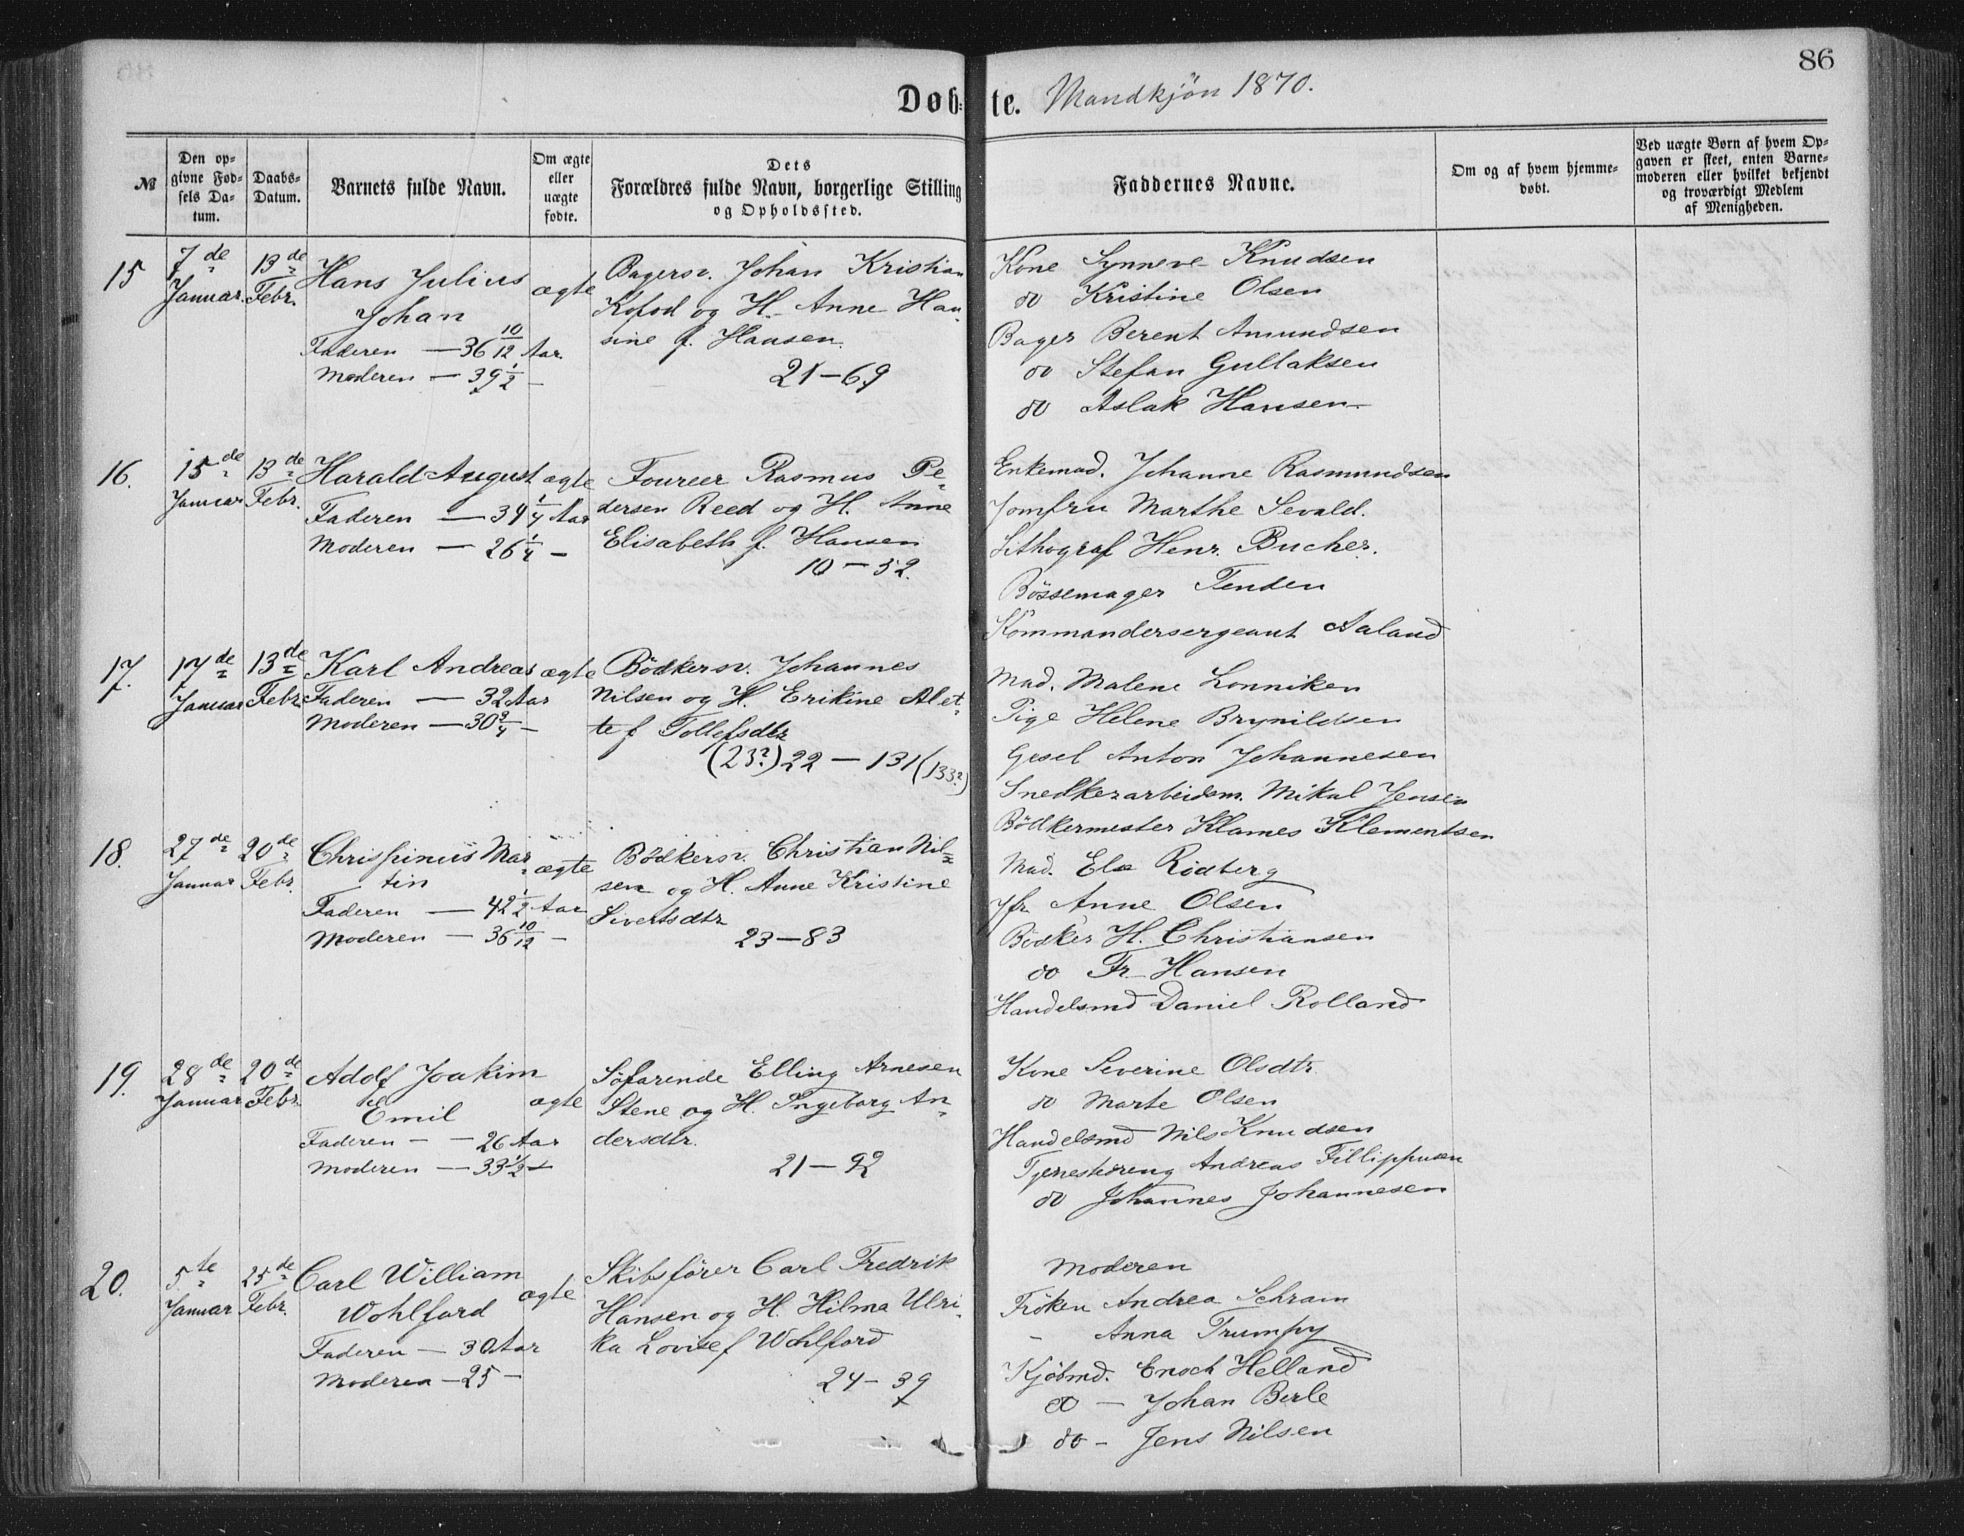 86
Døb-te. Mandkjön 1870.
№
Den opgivne Fødsels Datum.
Daabs-Datum.
Barnets fulde Navn.
Om ægte eller uægte fødte.
Dets Forældres fulde Navn, borgerlige Stilling og Opholdssted.
Faddernes Navne.
Om og af hvem hjemmedøbt.
Ved uægte Børn af hvem Opgaven er skeet, enten Barnemoderen eller hvilket bekjendt og troværdigt Medlem af Menigheden.
15
7de Januar.
13de Febr.
Hans Julius
Johan
Faderen — 36 10/12 Aar
Moderen — 39 1/2 —
ægte
Bagersv. Johan Kristian
Kofod og H. Anne Han-
sine f. Hansen.
21—69
Kone Synneve Knudsen
do Kristine Olsen
Bager Berent Amundsen
do Stefan Gullaksen
do Aslak Hansen
16.
15de Januar
13de Febr.
Harald August
Faderen — 34 1/4 Aar
Moderen — 26 1/4 —
ægte
Foureer Rasmus Pe-
dersen Reed og H. Anne
Elisabeth f. Hansen
10—52.
Enkemad. Johanne Rasmundsen
Jomfru Marthe Sevald.
Lithograf Henr. Bucher.
Bössemager Tenden
Kommandersergeant Aaland
17.
17de Januar
13de Febr.
Karl Andreas
Faderen — 32 Aar
Moderen — 30 3/4 —
ægte
Bödkersv. Johannes
Nilsen og H. Erikine Alet-
te f Tollefsdtr
(23?) 22 — 131 (133?)
Mad. Malene Lonniken
Pige Helene Brynildsen
Gesel Anton Johannesen
Snedkerarbeidsm. Mikal Jensen
Bödkermester Klames Klementsen
18.
27de Januar
20de Febr.
Chrispinus Mar-
tin
Faderen — 42 1/2 Aar
Moderen — 36 10/12 —
ægte
Bödkersv. Christian Nil-
sen og H. Anne Kristine
Sivertsdtr
23—83
Mad. Ele Rödberg
Jfr Anne Olsen
Bödker H. Christiansen
do Fr. Hansen
Handelsmd Daniel Rolland
19.
28de Januar
20de Febr.
Adolf Joakim
Emil
Faderen — 26 Aar
Moderen — 33 1/2 —
ægte
Söfarende Elling Arnesen
Stene og H. Ingeborg An-
dersdtr.
21—92
Kone Severine Olsdtr.
do Marte Olsen
Handelsmd Nils Knudsen
Tjenestdreng Andreas Fillippusen
do Johannes Johannesen
20.
5te Januar
25de Febr.
Carl William
Wohlfard
Faderen — 30 Aar
Moderen — 25 —
ægte
Skibsförer Carl Fredrik
Hansen og H. Hilma Ulri-
ka Lovise f Wohlfard
24—39
Moderen
Fröken Andrea Schram
- Anna Trumpy
Kjöbmd. Enoch Helland
do — Johan Berle
do — Jens Nilsen